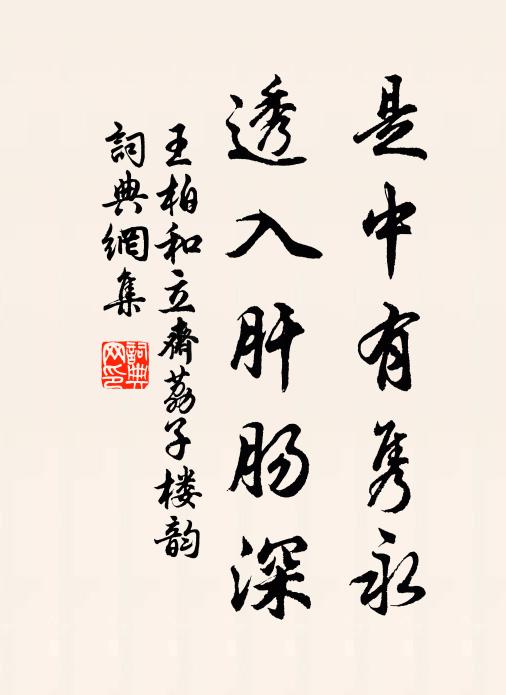 是中有隽永
透入肝肠深
王柏和立齋荔子楼韵
詞典網集
詞典網印